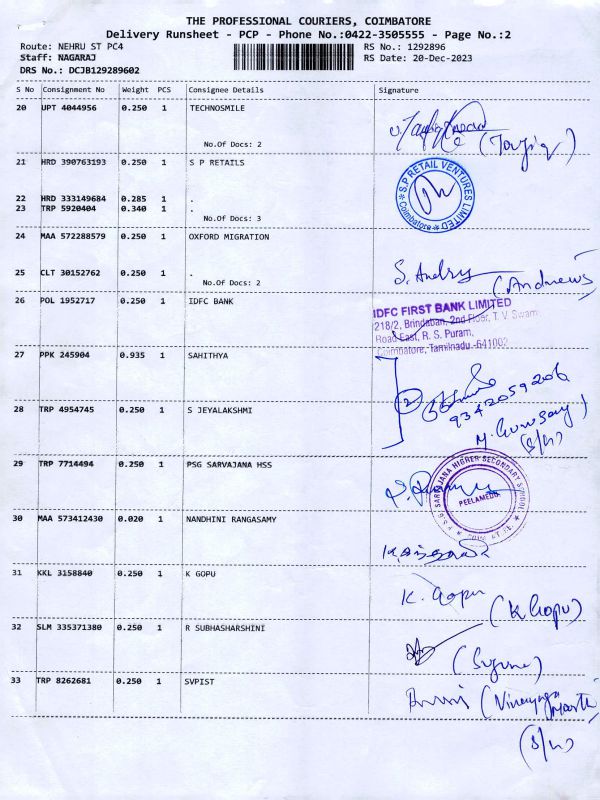 THE PROFESSIONAL COURIERS, COIMBATORE
Delivery Runsheet - PCP - Phone No.:0422-3505555 - Page No.:2
Route: NEHRU ST PC4 RS No.: 1292896
Staff: NAGARAJ RS Date: 20-Dec-2023
DRS No.: DCJB129289602
S No Consignment No Weight PCS Consignee Details Signature
20 UPT 4044956 0.250 1 TECHNOSMILE
No.Of Docs: 2
21 HRD 390763193 0.250 1 S P RETAILS
S.P RETAIL VENTURES LIMITED
Coimbatore
22 HRD 333149684 0.285 1 .
23 TRP 5920404 0.340 1 .
No.Of Docs: 3
24 MAA 572288579 0.250 1 OXFORD MIGRATION
S. Andry
(Andrews)
25 CLT 30152762 0.250 1 .
No.Of Docs: 2
26 POL 1952717 0.250 1 IDFC BANK
IDFC FIRST BANK LIMITED
218/2, Brindaban, 2nd Floor, T. V. Swamy
Road East, R. S. Puram,
Coimbatore, Tamilnadu -641002
27 PPK 245904 0.935 1 SAHITHYA
2
9342059206
28 TRP 4954745 0.250 1 S JEYALAKSHMI
29 TRP 7714494 0.250 1 PSG SARVAJANA HSS
P.S.G. SARVAJANA HIGHER SECONDARY SCHOOL
PEELAMEDU
30 MAA 573412430 0.020 1 NANDHINI RANGASAMY
31 KKL 3158840 0.250 1 K GOPU
K. Gopu
(K Gopu)
32 SLM 335371380 0.250 1 R SUBHASHARSHINI
33 TRP 8262681 0.250 1 SVPIST